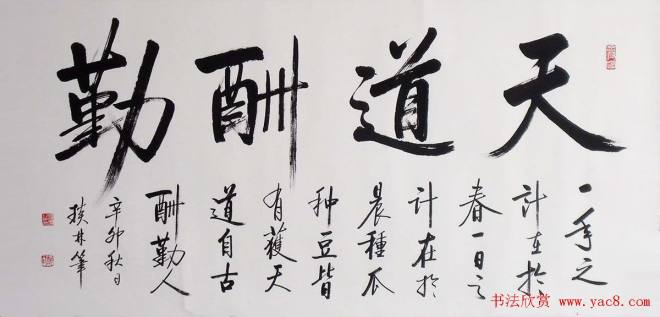 天道酬勤
一年之
計在於
春一日之
計在於
晨種瓜
種豆皆
有獲天
道自古
酬勤人
辛卯秋日
林筆
书法欣赏 www.yac8.com